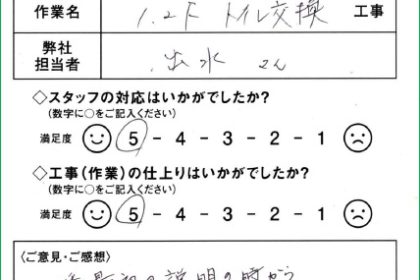 作業名 1.2F トイレ交換 工事
弊社
担当者 出水 さん
◇スタッフの対応はいかがでしたか?
(数字に○をご記入ください)
満足度 5 - 4 - 3 - 2 - 1
◇工事(作業)の仕上りはいかがでしたか?
(数字に○をご記入ください)
満足度 5 - 4 - 3 - 2 - 1
〈ご意見・ご感想〉
の説明の時から